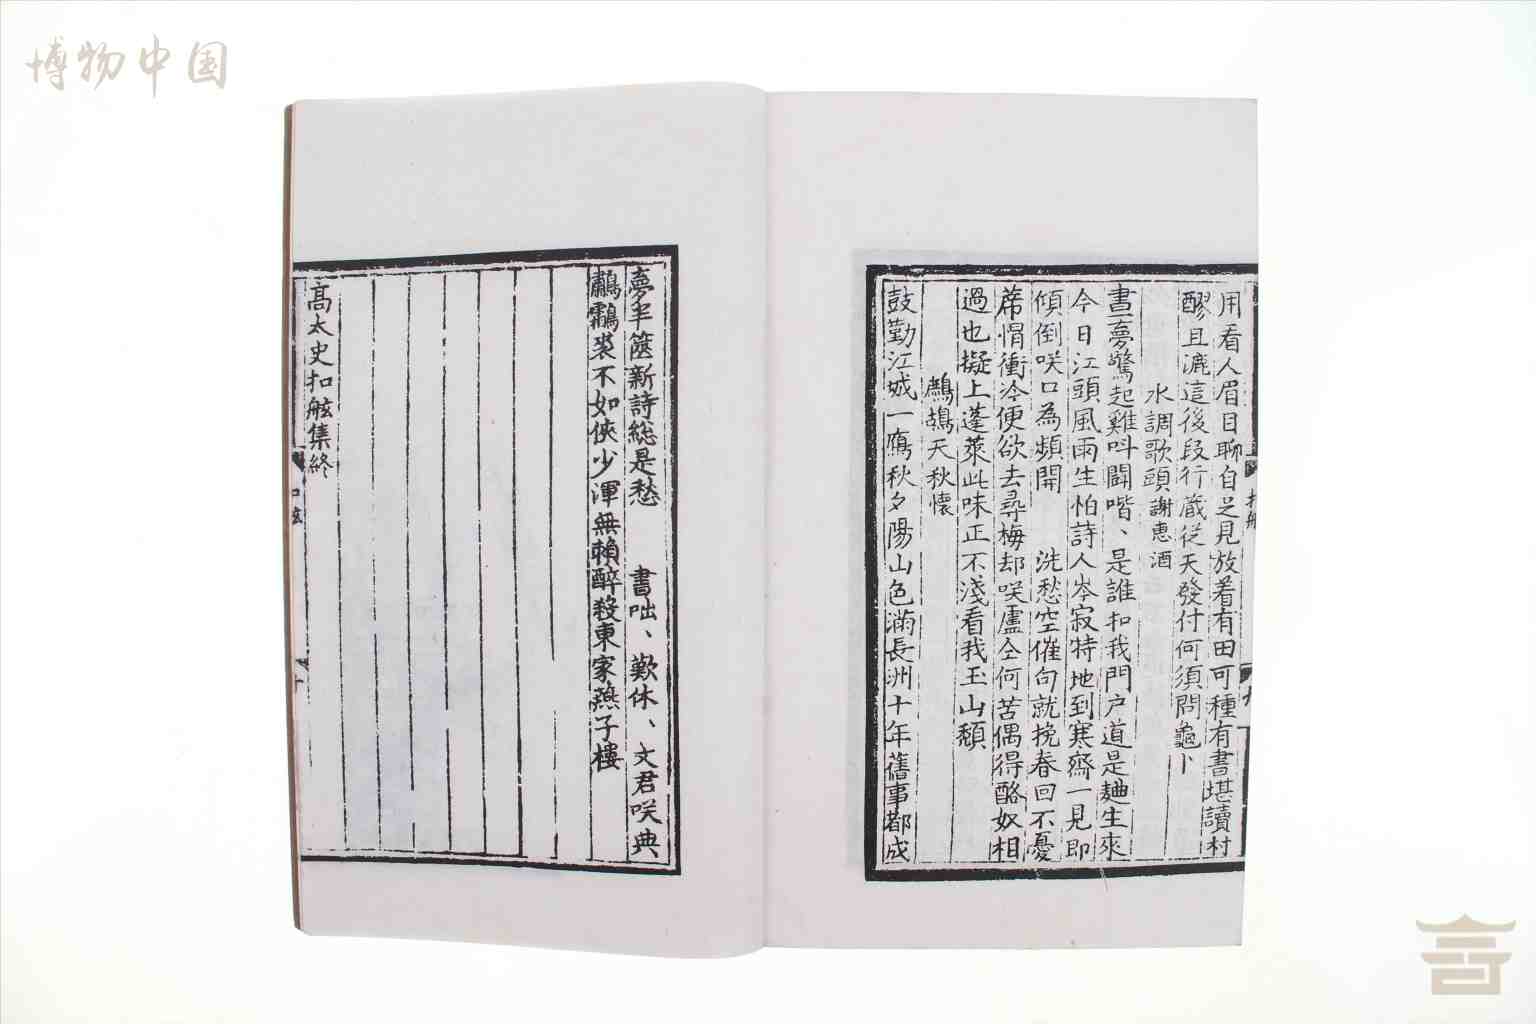 博物中国
用看人眉目聊自足見放着有田可種有書堪讀村
醪且漉這後段行藏從天發付何須問龜卜
水調歌頭 謝惠酒
晝夢驚起雞呌闘喈、是誰扣我門户道是麯生來
今日江頭風雨生怕詩人岑寂特地到寒齋一見即
傾倒咲口為頻開 洗愁空催句就挽春回不憂
蓆㡌衝冷便欲去尋梅却咲盧仝何苦偶得酪奴相
過也擬上蓬萊此味正不淺看我玉山頽
鷓鴣天 秋懷
鼓勤江城一鴈秋夕陽山色滿長洲十年舊事都成
扣舷
九
夢半篋新詩総是愁 書咄、歎休、文君咲典
鷫鸘裘不如俠少渾無賴醉殺東家燕子樓
高太史扣舷集終
十